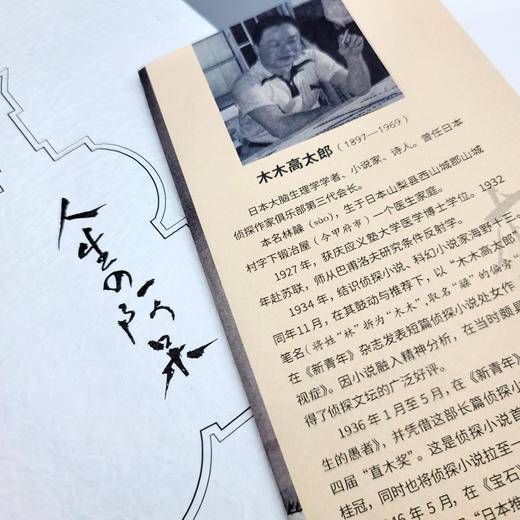 人生の阿呆
木木高太郎（1897—1969）
日本大脑生理学学者、小说家、诗人。曾任日本
侦探作家俱乐部第三代会长。
本名林髞（sào），生于日本山梨县西山城郡山城
村字下锻冶屋（今甲府市）一个医生家庭。
1927 年，获庆应义塾大学医学博士学位。1932
年赴苏联，师从巴甫洛夫研究条件反射学。
1934 年，结识侦探小说、科幻小说家海野十三。
同年11月，在其鼓动与推荐下，以“木木高太郎”
笔名（将姓“林”拆为“木木”，取名“髞”的偏旁“
在《新青年》杂志发表短篇侦探小说处女作
视症》。因小说融入精神分析，在当时颇具
得了侦探文坛的广泛好评。
1936 年 1月至 5月，在《新青年》
生的愚者》，并凭借这部长篇侦探小说
四届“直木奖”。这是侦探小说首
桂冠，同时也将侦探小说拉至一
46 年 5 月，在《宝石》
“日本推